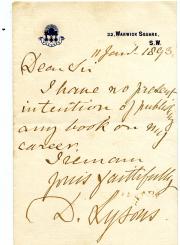 22, WARWICK SQUARE,
S.W.
11 Jan. 1893
Dear Sir
I have no present
intention of publishing
any book on my
career.
I remain
yours faithfully
D. Lysons.